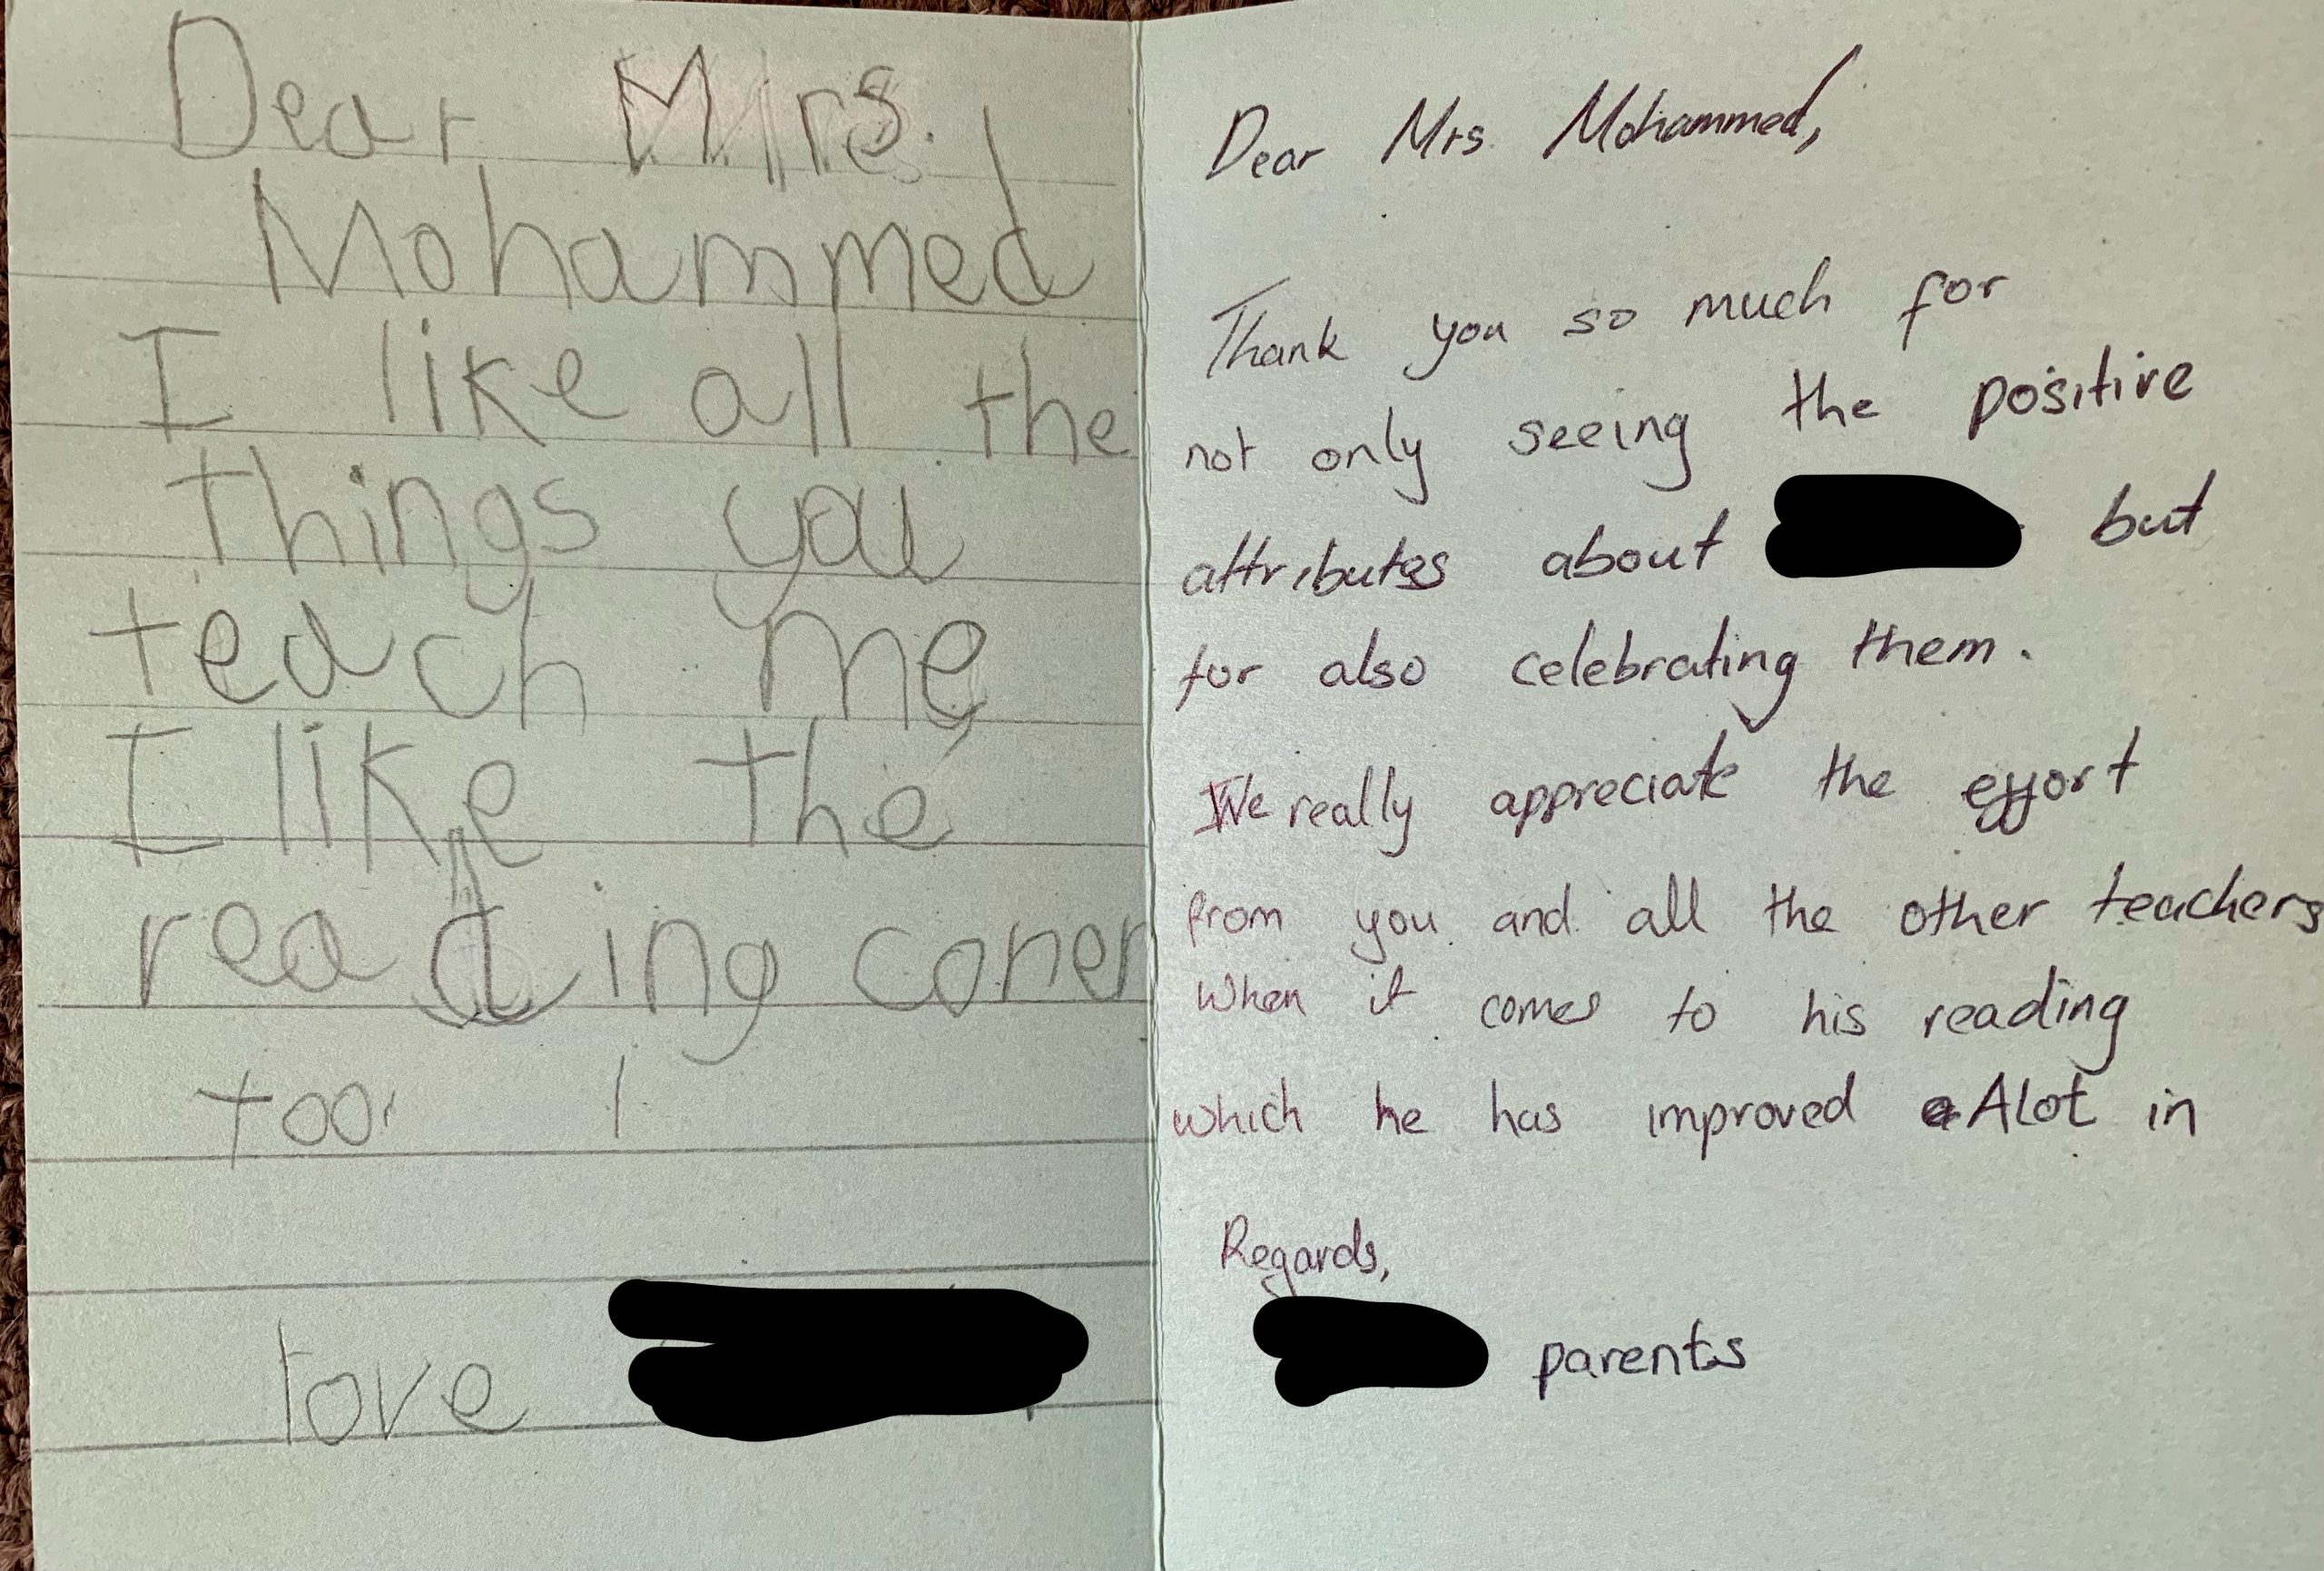 Dear Mrs.
Mohammed
I like all the
things you
teach me,
I like the
reading coner
too!
love
Dear Mrs. Mohammed,
Thank you so much for
not only seeing the positive
attributes about but
for also celebrating them.
We really appreciate the effort
from you and all the other teachers
when it comes to his reading
which he has improved Alot in
Regards,
parents